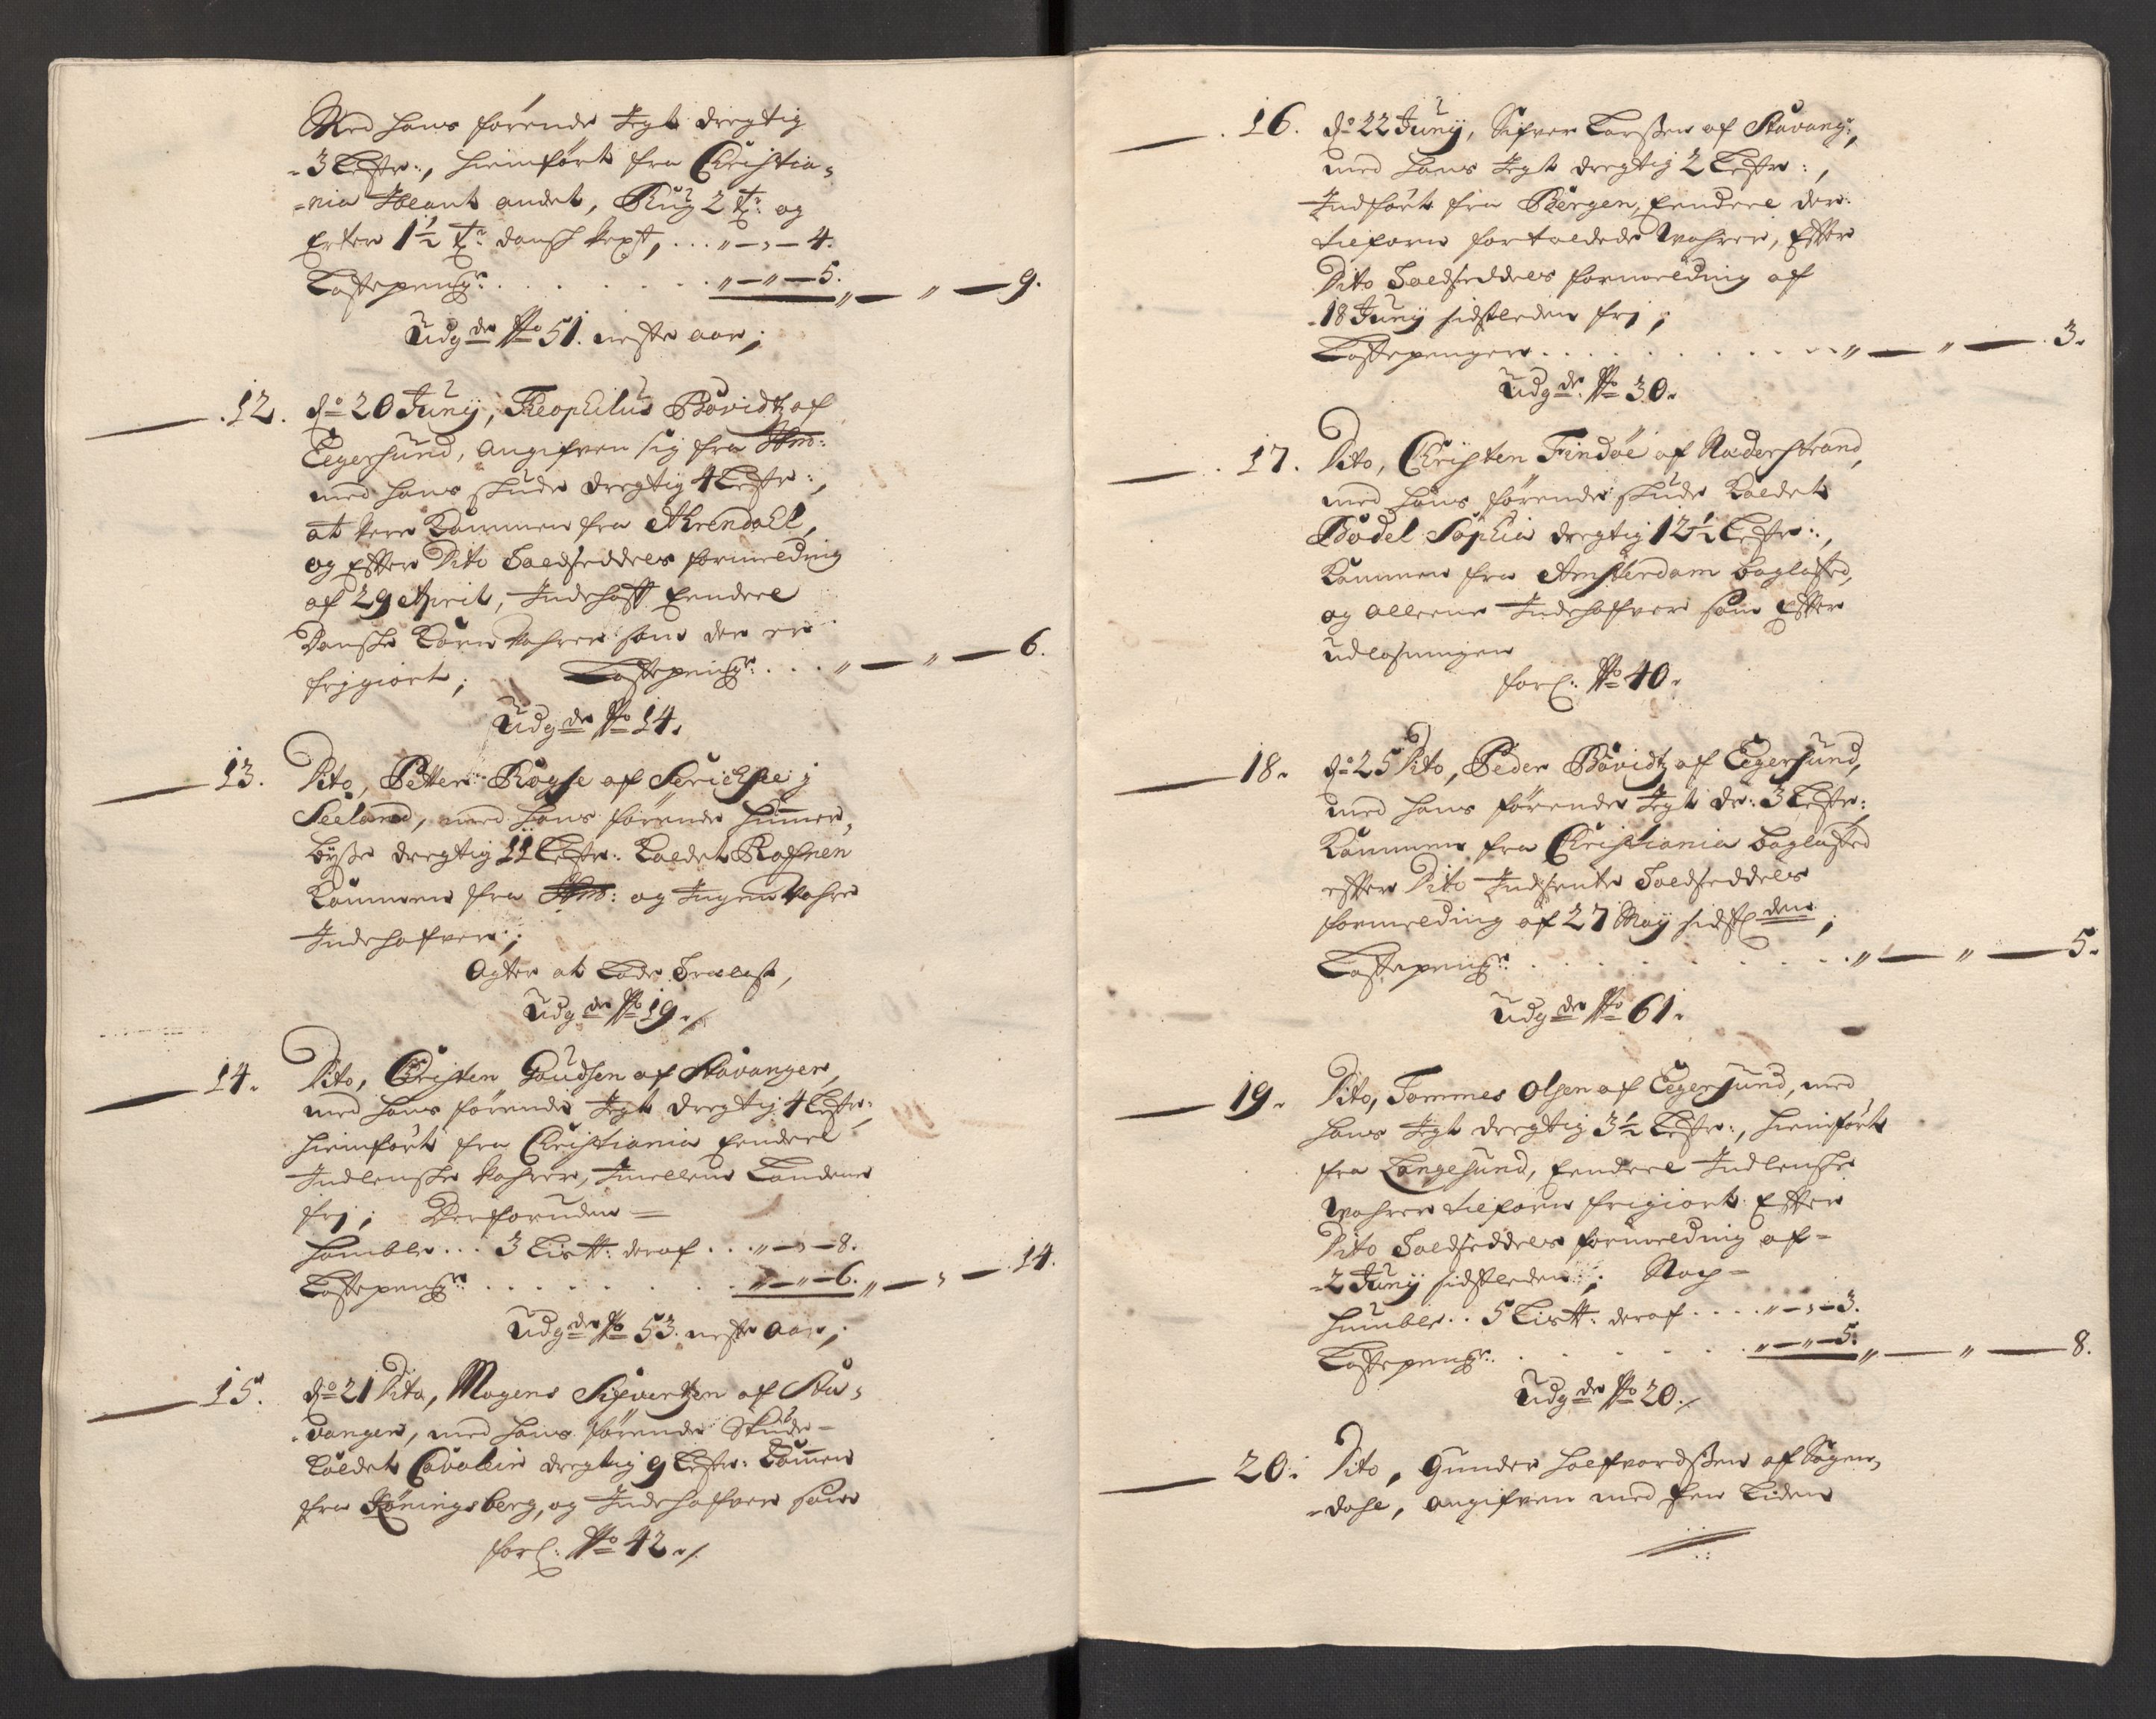 Med hans förende Jegt dregtig
3 Lester, hiemført fra Christia-
-nia Iblant andet, Rug 2 Tr: og
Erter 1½ Tr: dansk kept, ... „ – „ – 4.
Lastepeng: . . . . . . „ – „ – 5. „ – „ – 9.
Udg de No 51. neste aar;
12. do 20 Juny, Theophilus Bövidtz af
Eegersund, angifven sig fra
med hans skude dregtig 4 Lester:,
at vere Kommen fra Ahrendahl,
og Efter Dito Toldseddels formelding
af 29 April, Indehafft Eendeel
Danske Korn Vahrer som der er
frigiort; Lastepeng: ... „ – „ – 6.
Udg de No 14.
13. Dito, Petter Rogse af i
Seeland, med hans förende Hummer-
bysse dregtig 11 Lester: Kaldet Rafnen
Kommen fra og Ingen Vahre
Indehafver;
Agter at Lade Trælast,
Udg de No 19. /.
14. Dito, Christen Goudsen af Stavanger,
med hans förende Jegt dregtig 4 Lester:
hiemført fra Christiania Eendeel
Indlenske Vahrer, Imellem Landene
fri; Derforuden =
Homble ... 3 Lis℔: deraf ... „ – „ – 8.
Lastepeng: . . . . . . „ – „ – 6. „ – „ – 14.
Udg de No 53. neste Aar;
15. do 21 Dito, Mogens Sifvertzen af Sta-
-vanger, med hans förende Skude
Kaldet Cavalier dregtig 9 Lester: Kommen
fra Köningsberg, og Indehafver som
forh: No 42. /.
16. do 22 Juny, Sifver Larssen af Stavang:,
med hans Jegt dregtig 2 Lester:,
Indført fra Bergen, Eendeel der
tilforn fortoldede Wahrer, Efter
Dito Toldseddels formelding af
18 Juny sidstleden fri;
Lastepenger . . . . . . „ – „ – 3.
Udg de No 30.
17. Dito, Christen Findöe af Naderstrand,
med hans förende skude Kaldet
Bodel Sophia dregtig 12½ Lester:,
Kommen fra Amsterdam baglasted,
og alleene Indehafver som Efter
udlosningen
forh: No 40.
18. do 25 Dito, Peder Bövidtz af Eegersund,
med hans förende Jegt dr: 3 Lester:
Kommen fra Christiania baglasted
efter Dito Indsente Toldseddels
formelding af 27 May sidstl den;
Lastepeng: . . . . . . „ – „ – 5.
Udg de No 61.
19. Dito, Tommes Olsen af Eegersund, med
hans Jegt dregtig 3½ Lester:, hiemført
fra Langesund, Eendeel Indlenske
Wahrer tilforn frigiort Efter
Dito Toldseddels formelding af
2 Juny sidstleden; Noch
Humble .. 5 Lis℔: deraf .... „ – „ – 3.
Lastepeng: . . . . . . „ – „ – 5. „ – „ – 8.
Udg de No 20. /.
20. Dito, Gunder Halfvordssen af Sogen-
-dahl, angifven med Een Liden